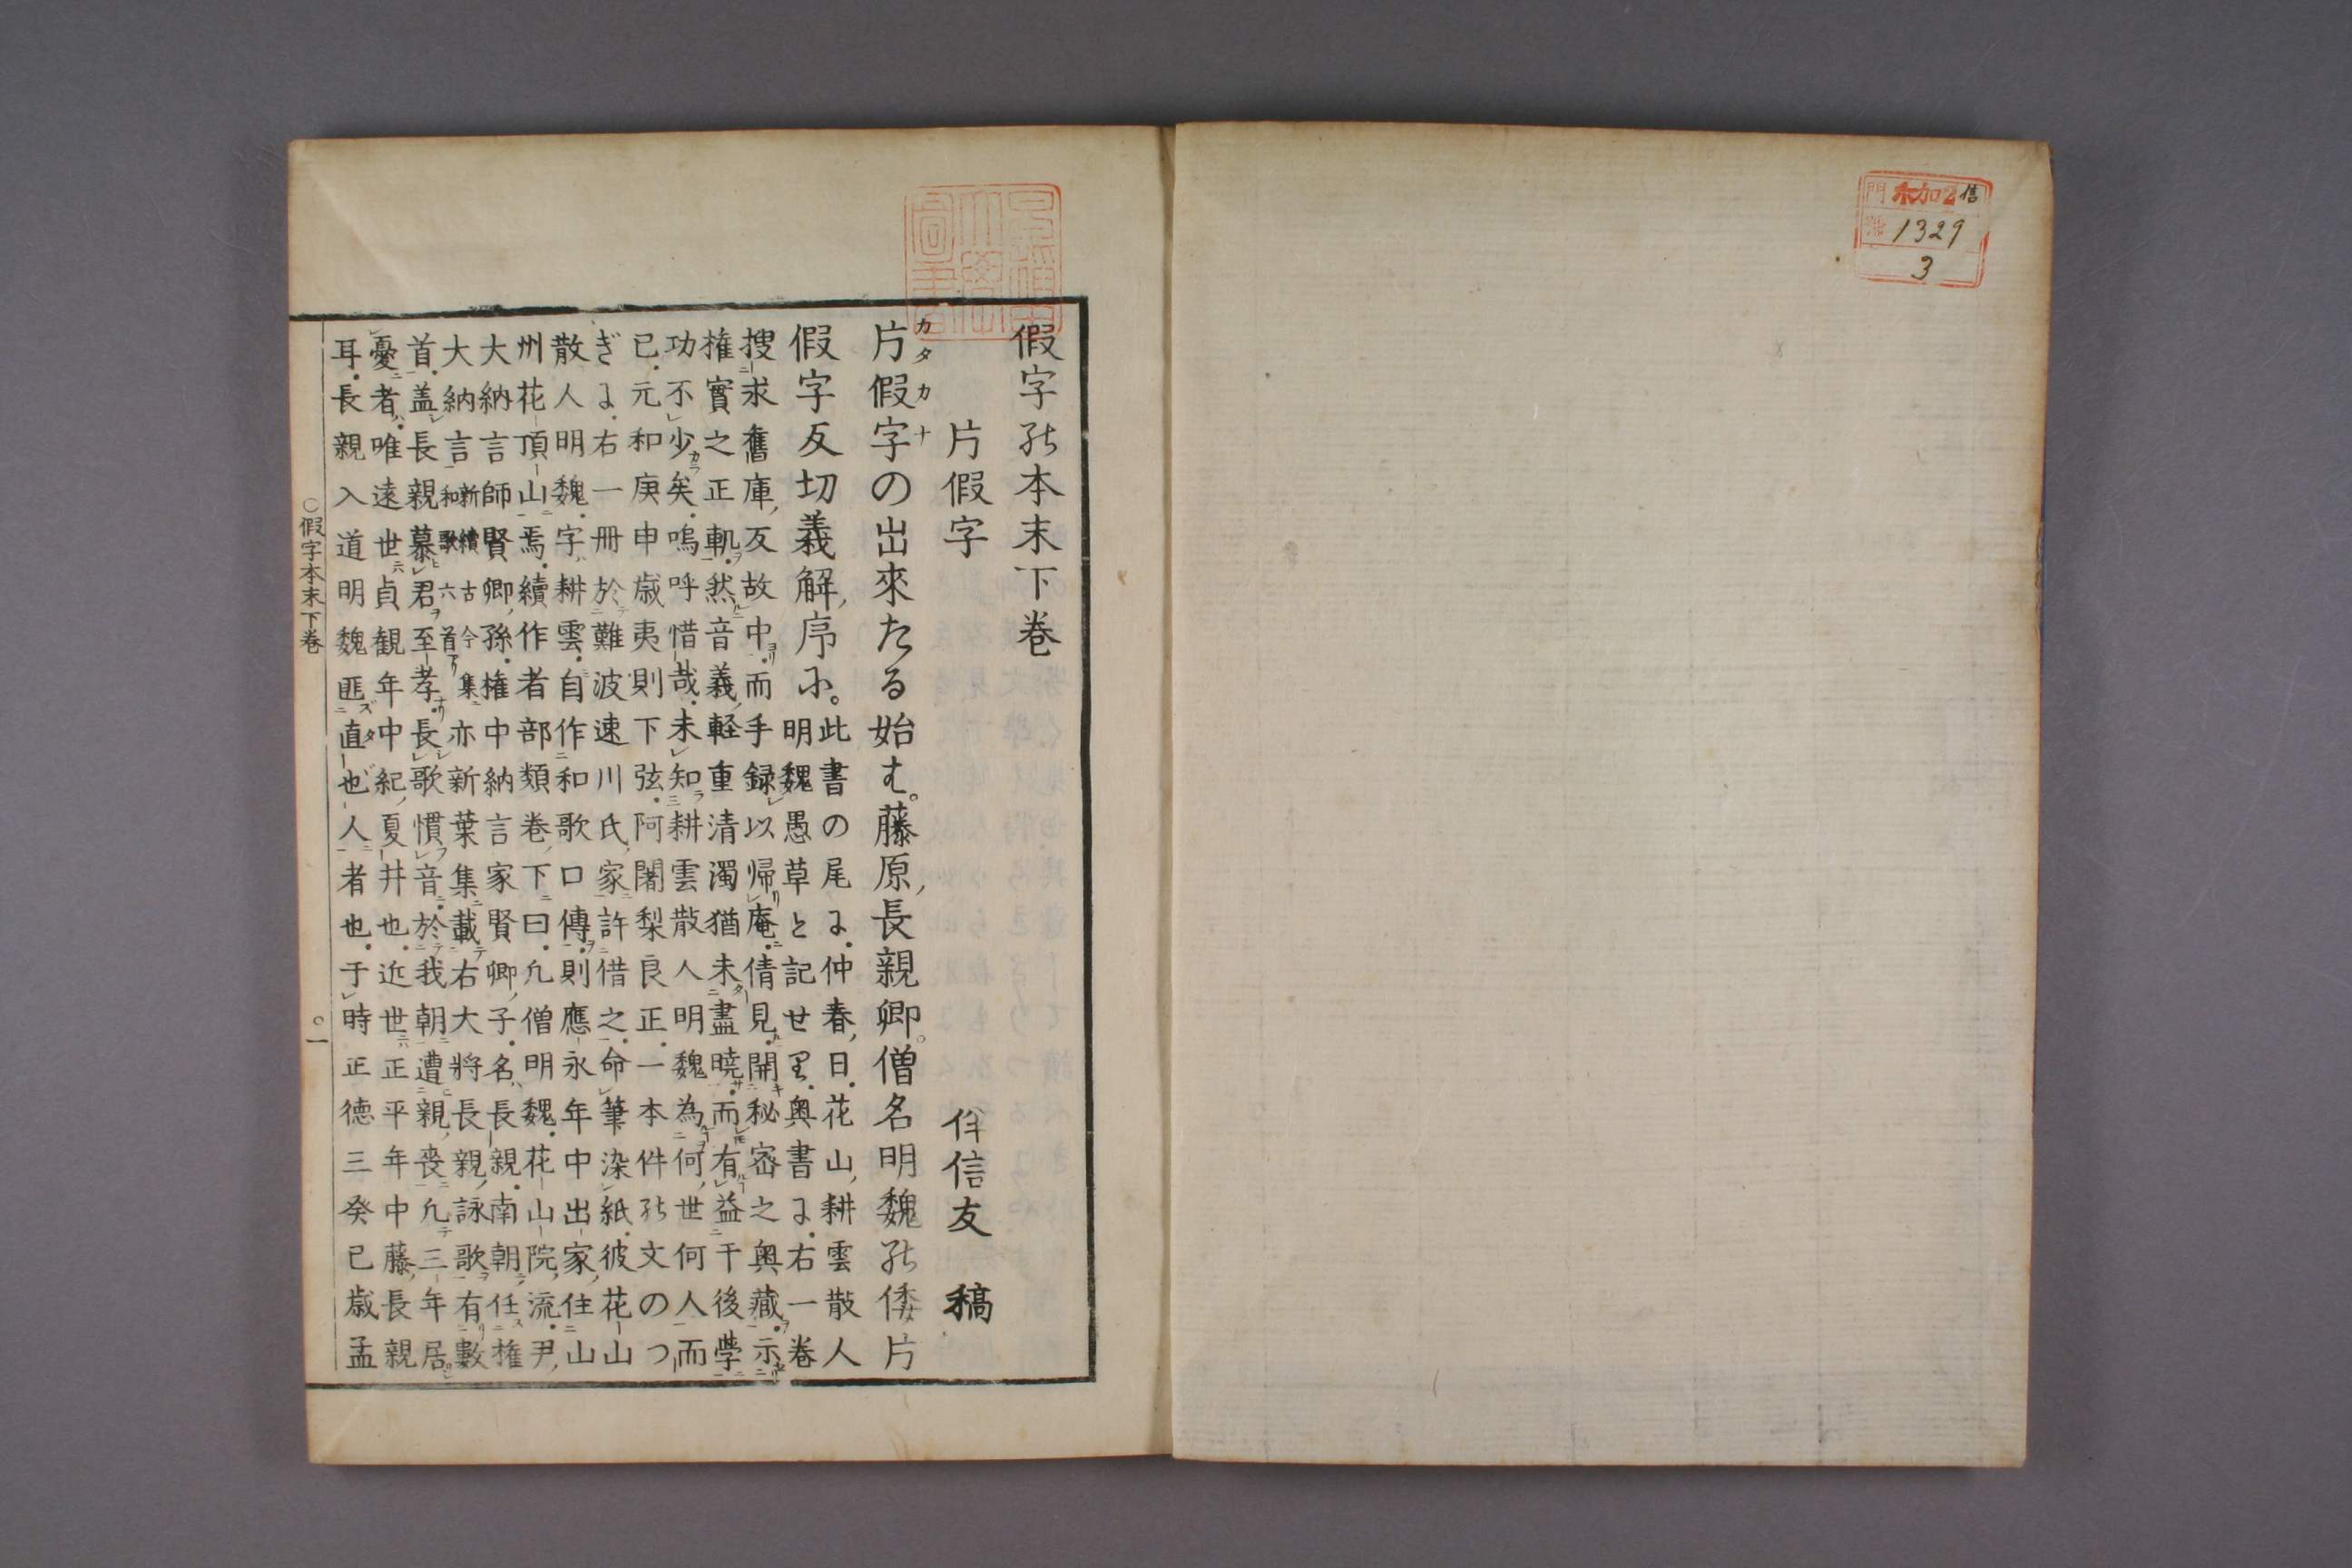 門 加2 信
號 1329
3
假字能本末下卷
片假字
伴信友 稿
片假字の出來たる始も。藤原長親卿。僧名明魏能倭片
カタカナ
假字反切義解序小。
此書の尾に。仲春日。花山耕雲散人
明魏愚草と記せり。奥書に。右一卷
搜求舊庫反故中而手録以帰庵倩見開秘密之奥藏示
権實之正軌然音義軽重清濁猶未盡曉而有益于後學
功不少矣嗚呼惜哉未知耕雲散人明魏為何世何人而
已元和庚申歳夷則下弦阿闍梨良正一本件能文のつ
ぎに右一冊於難波速川氏家許借之命筆染紙彼花山
散人明魏字耕雲自作和歌口傳則應永年中出家住山
州花頂山焉續作者部類卷下曰凡僧明魏花山院流尹
大納言師賢卿孫権中納言家賢卿子名長親南朝任権
大納言新續古今集和歌六首アリ亦新葉集載右大將長親詠歌有數
首盖長親慕君至孝長歌慣音於我朝遭親喪凡三年居
憂者唯遠世貞観年中紀夏井也近世正平年中藤長親
耳長親入道明魏匪直也人者也于時正徳三癸巳歳孟
○假字本末下卷
○一